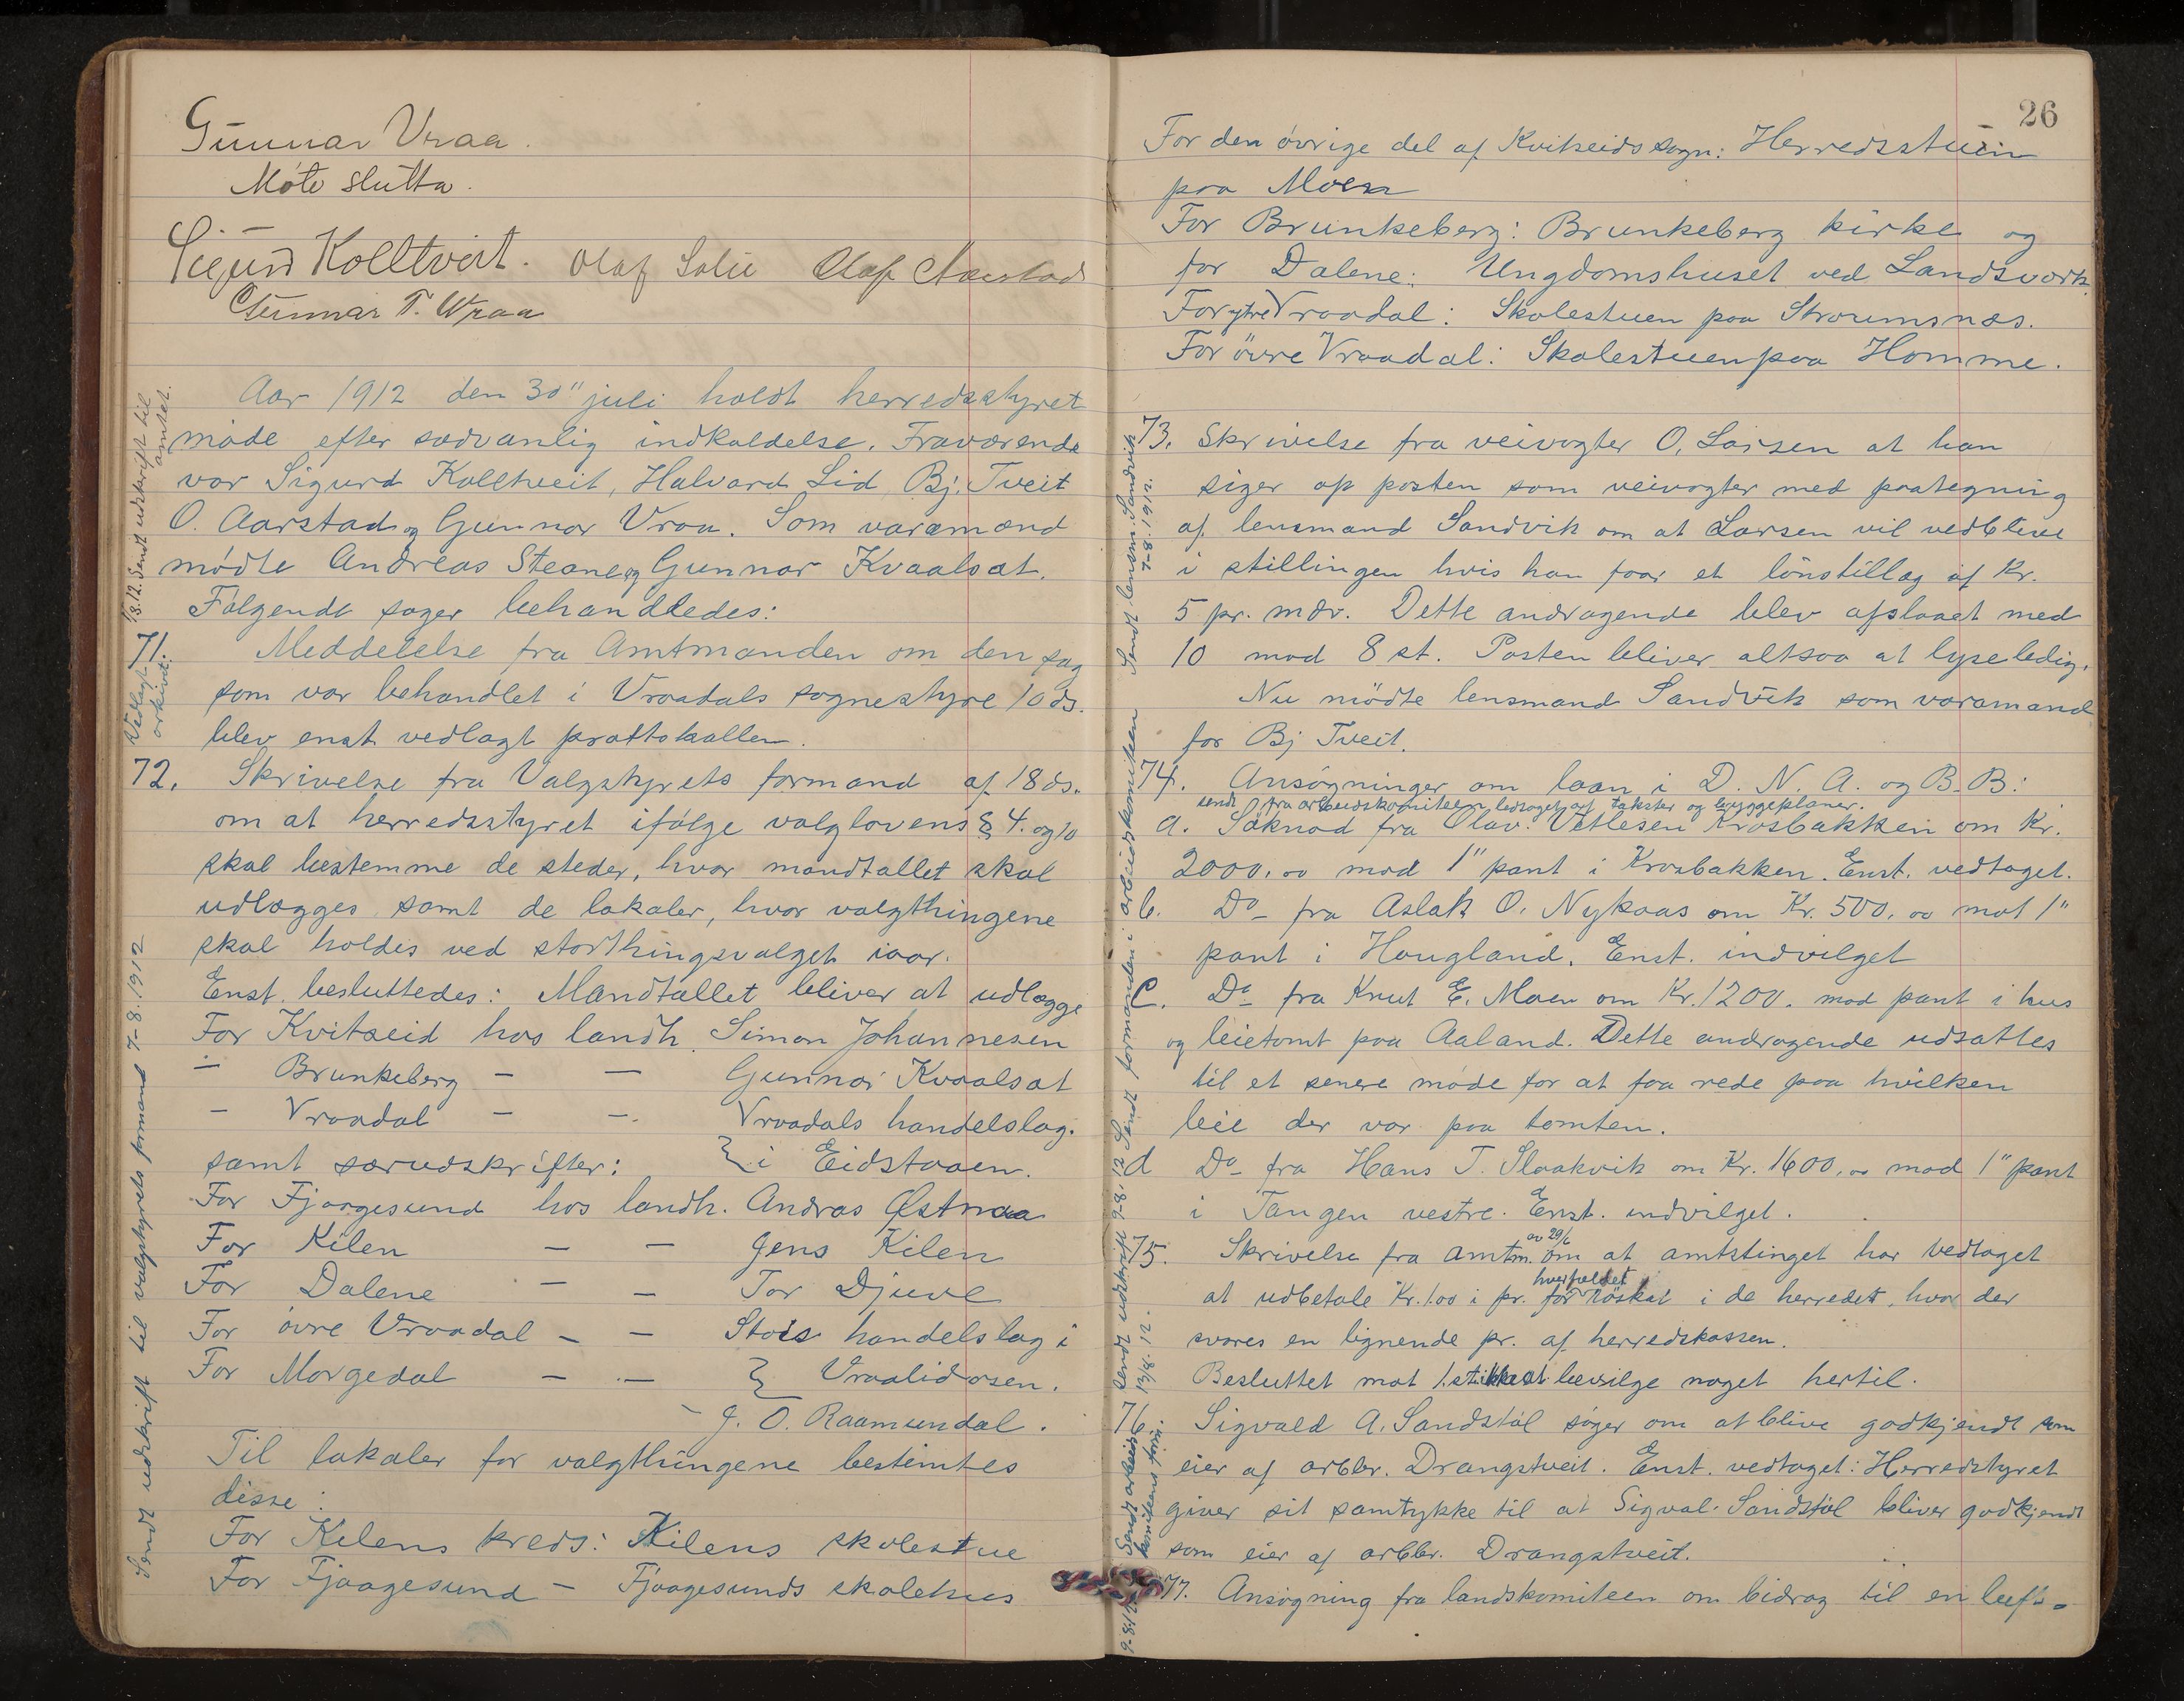 Gunnar Vraa.
Möte slutta.
Sigurd Kolltveit. Olaf Solli Olaf Aarstad
Gunnar T. Wraa
Aar 1912 den 30" juli holdt herredsstyret
möde efter sædvanlig indkaldelse. Fraværende
var Sigurd Kolltveit, Halvard Lid, Bj. Tveit
O. Aarstad og Gunnar Vraa. Som varamænd
mödte Andreas Steane og Gunnar Kvaalsat.
Følgende sager behandledes:
71. Meddelelse fra Amtmanden om den sag
som var behandlet i Vraadals sognestyre 10 ds.
blev enst vedlagt prottokollen.
72. Skrivelse fra Valgstyrets formand af 18 ds.
om at herredsstyret ifølge valglovens § 4. og 10
skal bestemme de steder, hvor mandtallet skal
udlægges samt de lokaler, hvor valgthingene
skal holdes ved storthingsvalget iaar.
Enst. besluttedes: Mandtallet bliver at udlægge
For Kvitseid hos landh. Simon Johannesen
- Brunkeberg - - Gunnar Kvaalsat
- Vraadal - - Vraadals handelslag.
samt særudskrifter: } i Eidstaaen.
For Fjaagesund hos landh. Andras Østnaa
For Kilen - - Jens Kilen
For Dalene - - Tor Djuve
For övre Vraadal - - Stois handelslag i
For Morgedal - - } Vraalidosen.
- J. O. Raamundal.
Til lokaler for valgthingene bestemtes
disse:
For Kilens kreds: Kilens skolestue
For Fjaagesund - Fjaagesunds skolehus
1/8.12. Sendt udskrift til
amtet.
Vedlagt
arkivet.
Sendt udskrift til valgstyrets formand 7-8.1912
26
For den övrige del af Kvitseids sogn: Herredsstuen
paa Moen
For Brunkeberg: Brunkeberg kirke og
for Dalene: Ungdomshuset ved Landsverk.
For ytre Vraadal: Skolestuen paa Straumsnæs.
For övre Vraadal: Skolestuen paa Homme.
73. Skrivelse fra veivogter O. Larsen at han
siger op posten som veivogter med paategning
af lensmand Sandvik om at Larsen vil vedblive
i stillingen hvis han faar et lönstillæg af Kr.
5 pr. mdr. Dette andragende blev afslaaet med
10 mod 8 st. Posten bliver altsaa at lyse ledig.
Nu mödte lensmand Sandvik som varamand
for Bj Tveit.
74. Ansögninger om laan i D. N. A. og B. B:
sendt fra arbeidskomiteen ledsaget af takster og byggeplaner.
a. Söknad fra Olav Vetlesen Krosbakken om Kr.
2000.00 mod 1" pant i Krosbakken. Enst. vedtaget.
b. Do- fra Aslak O. Nykaas om Kr. 500.00 mot 1"
pant i Hougland. Enst. indvilget
C. Do- fra Knut E. Moen om Kr. 1200. mod pant i hus
og leietomt paa Aaland. Dette andragende udsattes
til et senere möde for at faa rede paa hvilken
leie der var paa tomten.
d Do- fra Hans T. Slaakvik om Kr. 1600.00 mod 1" pant
i Tangen vestre. Enst. indvilget.
av 29/6
75. Skrivelse fra amtm. om at amtstinget har vedtaget
hverfældet
at udbetale Kr. 1.00 i pr. for röskat i de herreder, hvor der
svares en lignende pr. af herredskassen.
Besluttet mot 1. st. ikke at bevilge noget hertil.
76. Sigvald A. Sandstöl söger om at blive godkjendt som
eier af arbbr. Drangstveit. Enst. vedtaget: Herredstyret
giver sit samtykke til at Sigval Sandstöl bliver godkjendt
som eier af arbbr. Drangstveit.
77. Ansögning fra landskomiteen om bidrag til en luft-
Sendt lensm. Sandvik
7-8.1912.
9-8.12 Sendt formanden i arbeidskomiteen
Sendt udskrift
13/8.12.
Sendt arbeids
komiteens form.